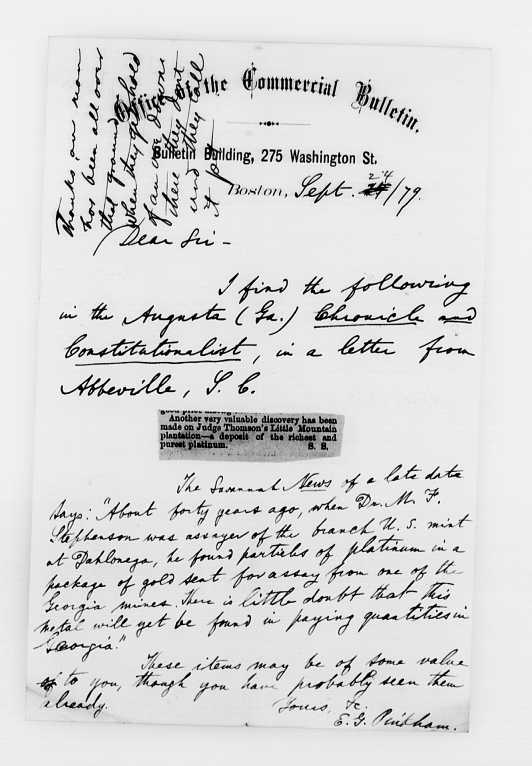 Thanks, our man
has been all over
that ground
when they get hold
of an ore down
there they don't
and they call
it pt
Office of the Commercial Bulletin.
Bulletin Building, 275 Washington St.
Boston, Sept. 24/79.
Dear Sir –
I find the following
in the Augusta (Ga.) Chronicle and
Constitutionalist, in a letter from
Abbeville, S. C.
Another very valuable discovery has been
made on Judge Thomson's Little Mountain
plantation—a deposit of the richest and
purest platinum. S. S.
The Savannah News of a late date
says: "About forty years ago, when Dr. M. F.
Stephenson was assayer of the branch U. S. mint
at Dahlonega, he found particles of platinum in a
package of gold sent for assay from one of the
Georgia mines. There is little doubt that this
metal will yet be found in paying quantities in
Georgia."
These items may be of some value
to you, though you have probably seen them
already.
Yours, &c.
E. G. Pindham.